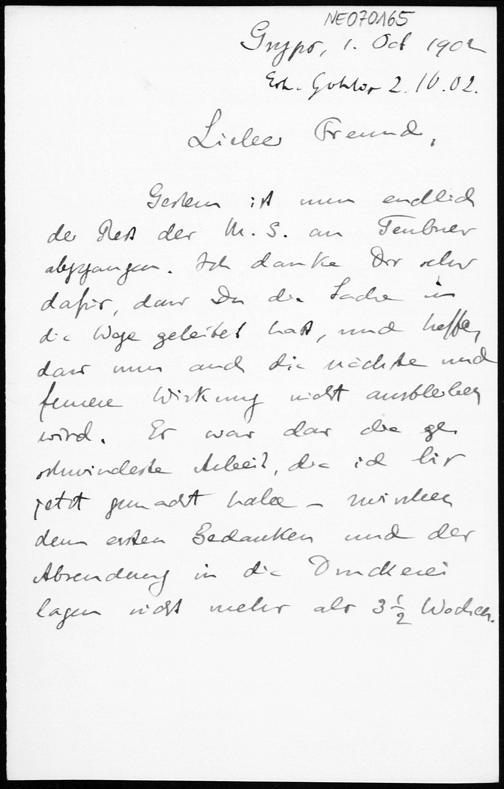 NE070165
Gryps, 1. Oct 1902
Erh. 2.10.02.
Lieber Freund,
Gestern ist nun endlich
der Rest der M.S. an Teubner
abgegangen. Ich danke Dir sehr
dafür, dass Du die Sache in
die Wege geleitet hast, und hoffe,
dass nun auch die nächste und
fernere Wirkung nicht ausbleiben
wird. Es war das die ge-
schwindeste Arbeit, die ich bis
jetzt gemacht habe – zwischen
dem ersten Gedanken und der
Absendung in die Druckerei
lagen nicht mehr als 3 1/2 Wochen.